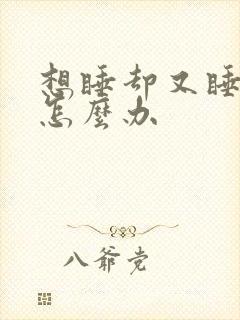 想睡却又睡
怎麼办
八爷党